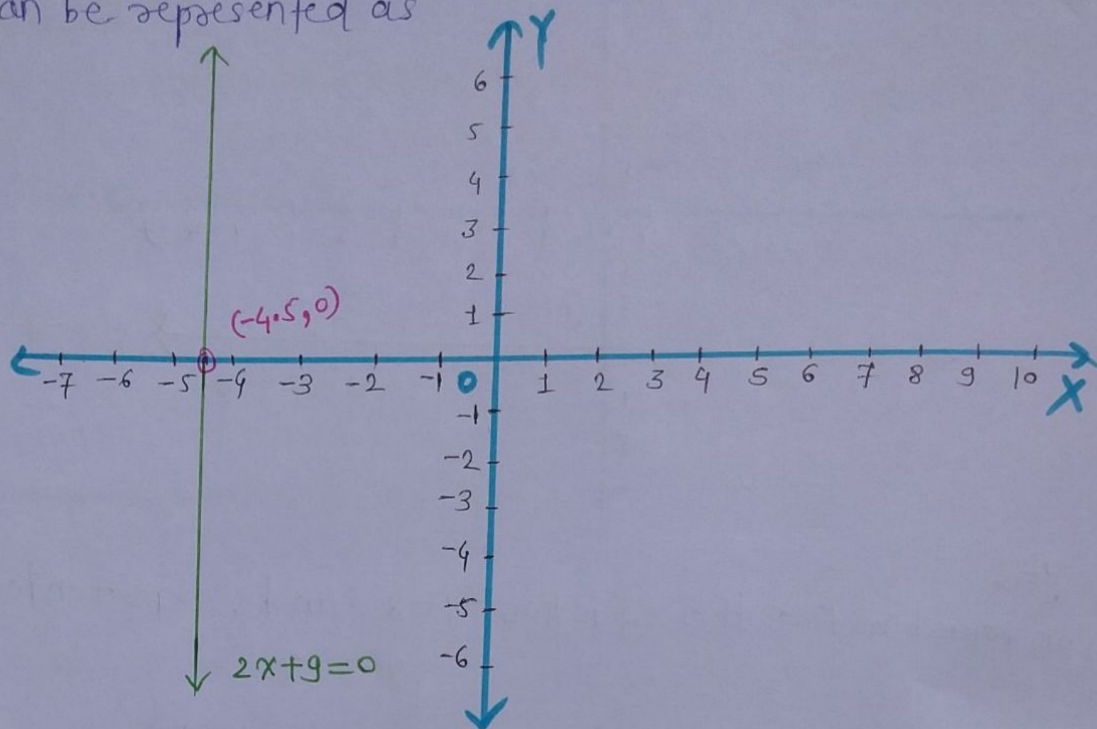 an be represented as
Y
6
5
4
3
2
1
(-4.5,0)
-7 -6 -5 -4 -3 -2 -1 0 1 2 3 4 5 6 7 8 9 10
X
-1
-2
-3
-4
-5
-6
2x+9=0